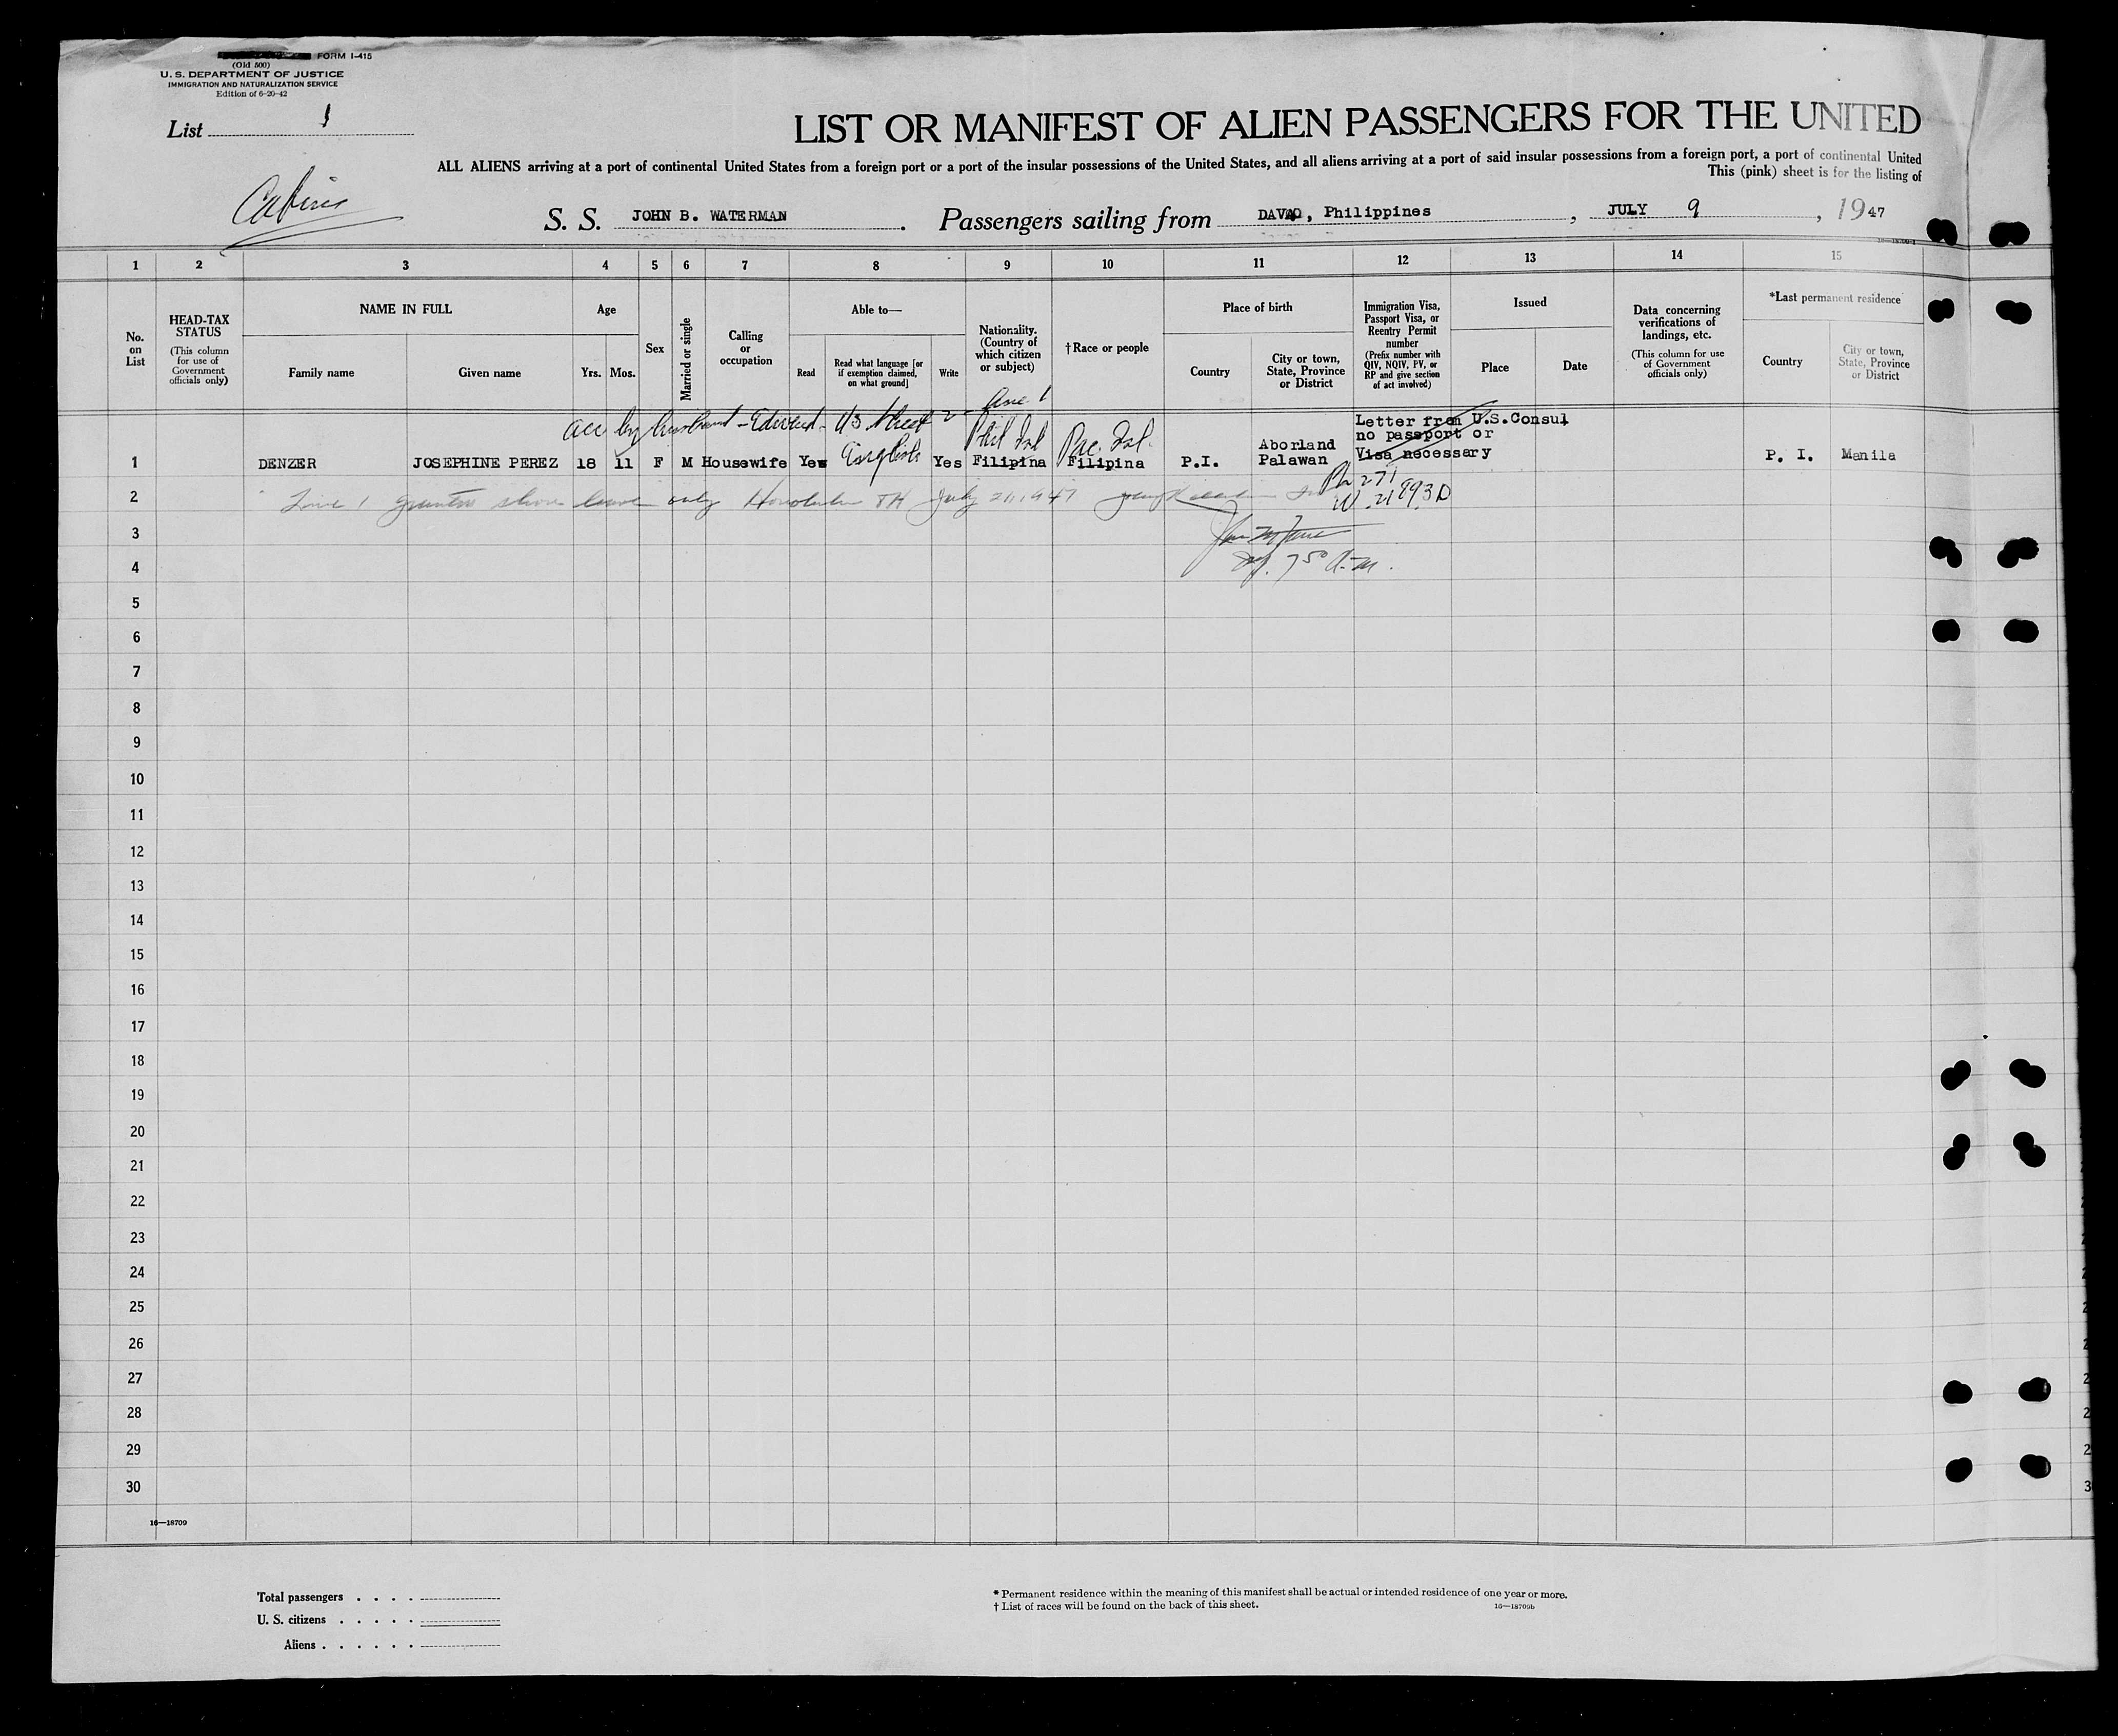 FORM I-415
(Old 500)
U. S. DEPARTMENT OF JUSTICE
IMMIGRATION AND NATURALIZATION SERVICE
Edition of 6-20-42
List 1
LIST OR MANIFEST OF ALIEN PASSENGERS FOR THE UNITED
ALL ALIENS arriving at a port of continental United States from a foreign port or a port of the insular possessions of the United States, and all aliens arriving at a port of said insular possessions from a foreign port, a port of continental United
This (pink) sheet is for the listing of
Cabin
S. S. JOHN B. WATERMAN. Passengers sailing from DAVAO, Philippines, JULY 9, 1947
1 2 3 4 5 6 7 8 9 10 11 12 13 14 15
No. on List
HEAD-TAX STATUS (This column for use of Government officials only)
NAME IN FULL
Family name
Given name
Age
Yrs. Mos.
Sex
Married or single
Calling or occupation
Able to—
Read
Read what language [or if exemption claimed, on what ground]
Write
Nationality. (Country of which citizen or subject)
†Race or people
Place of birth
Country
City or town, State, Province or District
Immigration Visa, Passport Visa, or Reentry Permit number (Prefix number with QIV, NQIV, PV, or RP and give section of act involved)
Issued
Place
Date
Data concerning verifications of landings, etc. (This column for use of Government officials only)
*Last permanent residence
Country
City or town, State, Province or District
acc by husband - Edward - US
Letter from U.S.Consul
no passport or
Visa necessary
Phil Isl Pac. Isl.
Aborland
1 DENZER JOSEPHINE PEREZ 18 11 F M Housewife Yes English Yes Filipina Filipina P.I. Palawan P. I. Manila
2 Line 1 granted shore leave only Honolulu TH July 21, 1947
3
4
5
6
7
8
9
10
11
12
13
14
15
16
17
18
19
20
21
22
23
24
25
26
27
28
29
30
16—18709
Total passengers
U. S. citizens
Aliens
* Permanent residence within the meaning of this manifest shall be actual or intended residence of one year or more.
† List of races will be found on the back of this sheet.
16—18709b